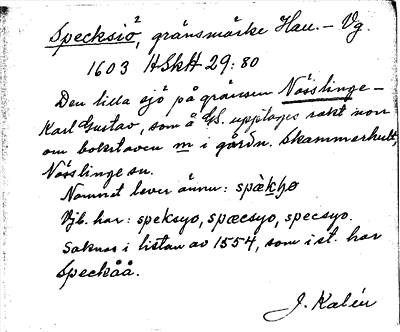 Specksiö², gränsmärke Hall. – Vg.
1603 HSkH 29:80
Den lilla sjö på gränsen Nösslinge –
Karl Gustav, som å GS. upptages rakt norr
om bokstaven m i gårdn. Skammerhult,
Nösslinge sn.
Namnet lever ännu: spækhø
Vjb. har: speksyo, spæcsyo, specsyo.
Saknas i listan av 1554, som i st. har
Speckåå.
J. Kalén